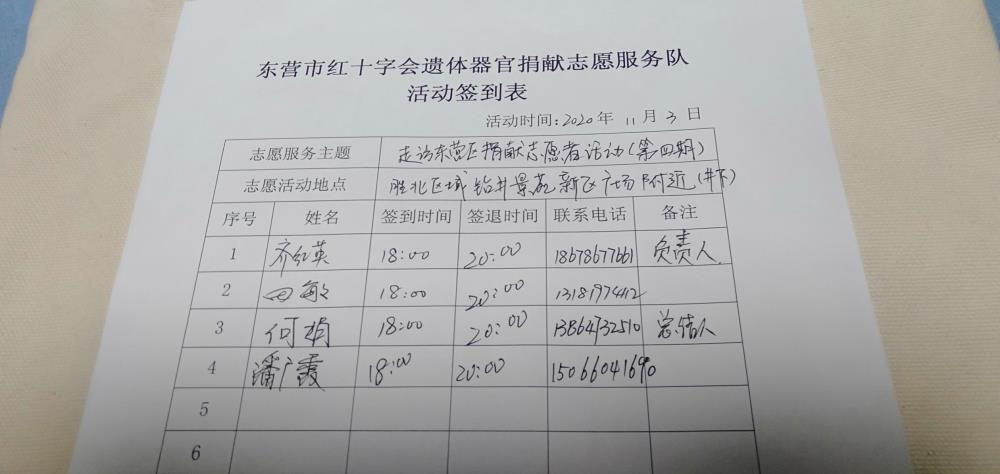 东营市红十字会遗体器官捐献志愿服务队
活动签到表
活动时间:2020年 11月 3日
志愿服务主题 走访东营区捐献志愿者活动(第四期)
志愿活动地点 胜北区域钻井景苑新区广场附近(井下)
序号 姓名 签到时间 签退时间 联系电话 备注
1 齐红英 18:00 20:00 18678677661 负责人
2 田敏 18:00 20:00 13181974412
3 何娟 18:00 20:00 13864732510 总结人
4 潘广霞 18:00 20:00 15066041690
5
6